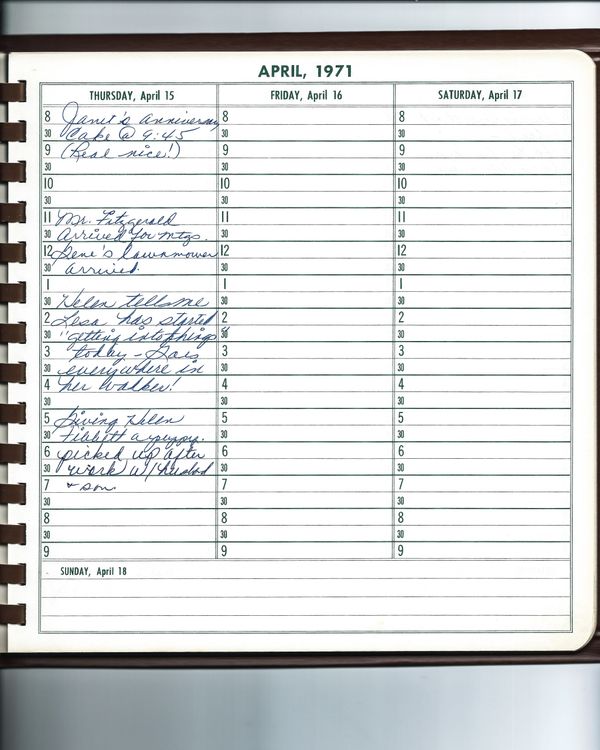 APRIL, 1971
THURSDAY, April 15
8 Janet's anniversary
30 Cake @ 9:45
9 (Real nice!)
30
10
30
11 Mr. Fitzgerald
30 Arrived for mtgs.
12 Gene's lawnmower
30 arrived.
1
30 Helen tells me
2 Lesa has started
30 "getting into things"
3 today - Goes
30 everywhere in
4 her walker!
30
5 Giving Helen
30 Tibbett a puppy.
6 picked up after
30 work w/ husband
7 + son
30
8
30
9
FRIDAY, April 16
8
30
9
30
10
30
11
30
12
30
1
30
2
30
3
30
4
30
5
30
6
30
7
30
8
30
9
SATURDAY, April 17
8
30
9
30
10
30
11
30
12
30
1
30
2
30
3
30
4
30
5
30
6
30
7
30
8
30
9
SUNDAY, April 18